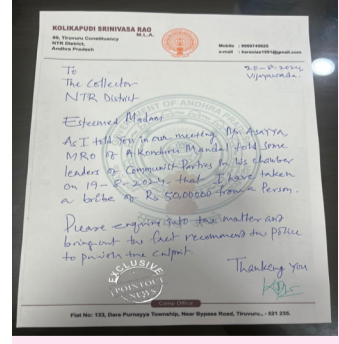 KOLIKAPUDI SRINIVASA RAO
M.L.A.
69, Tiruvuru Constituency
NTR District,
Andhra Pradesh
Mobile
e-mail
20-8-2024
Vijayawada.
To
The Collector
NTR District
GOVERNMENT OF ANDHRA PRADESH
Esteemed Madam
As I told you in our meeting, Mr Asayya,
MRO of A. Konduru Mandal told some
leaders of Communist Parties in his chamber
on 19-8-2024 that I have taken
a bribe of Rs 50,00000 from a Person.
Please enquire into the matter and
bring out the fact recommend the police
to punish the culprit.
Thanking You
EXCLUSIVE
POINTOUT
NEWS
Camp Office
Flat No: 133, Dara Purnayya Township, Near Bypass Road, Tiruvuru,. - 521 235.